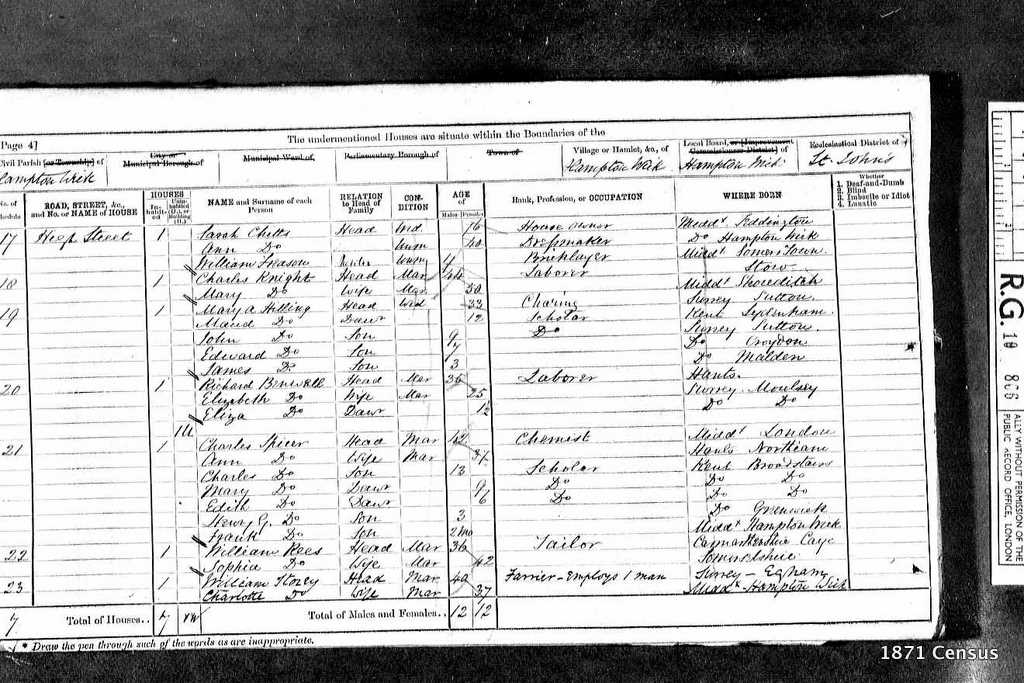 Page 4]
The undermentioned Houses are situate within the Boundaries of the
Civil Parish [or Township] of
City or Municipal Borough of
Municipal Ward of
Parliamentary Borough of
Town of
Village or Hamlet, &c., of
Local Board, or [Improvement Commissioners District] of
Ecclesiastical District of
Hampton Wick
Hampton Wick
Hampton Wick
St. John's
No. of Schedule
ROAD, STREET, &c., and No. or NAME of HOUSE
HOUSES
In-habited
Uninhabited (U.), or Building (B.)
NAME and Surname of each Person
RELATION to Head of Family
CON-DITION
AGE of
Males
Females
Rank, Profession, or OCCUPATION
WHERE BORN
Whether
1. Deaf-and-Dumb
2. Blind
3. Imbecile or Idiot
4. Lunatic
17 High Street 1 Sarah Head Wid 76 House owner Middx Teddington
Ann Do Unm 40 Dressmaker Do Hampton Wick
William Unm Bricklayer Middx Somers Town
18 1 Charles Knight Head Mar 44 Laborer Stow
Mary Do Wife Mar 50 Middx Shoreditch
19 1 Mary A Hilling Head Wid 33 Charing Surrey Sutton
Maud Do Dawr 12 Scholar Kent
John Do Son 9 Do Surrey Sutton
Edward Do Son 7 Do Croydon
James Do Son 3 Do Malden
20 1 Richard Head Mar 36 Laborer Hants
Elizabeth Do Wife Mar 25 Surrey Moulsey
Eliza Do Dawr 1/2 Do Do
1U
21 1 Charles Spicer Head Mar 42 Chemist Middx London
Ann Do Wife Mar Hants
Charles Do Son 12 Scholar Kent Broadstairs
Mary Do Dawr 9 Do Do Do
Edith Do Dawr 6 Do Do Do
Henry G. Do Son 3 Do Greenwich
Frank Do Son 2mo Middx Hampton Wick
22 1 William Rees Head Mar 36 Tailor
Sophia Do Wife Mar 42 Somersetshire
23 1 William Storey Head Mar 40 Farrier - Employs 1 man Surrey - Egham
Charlotte Do Wife Mar 37 Middx Hampton Wick
7 Total of Houses.. 7 Total of Males and Females.. 12 12
* Draw the pen through such of the words as are inappropriate.
R.G. 10
866
ALLY WITHOUT PERMISSION OF THE
PUBLIC RECORD OFFICE, LONDON
1871 Census